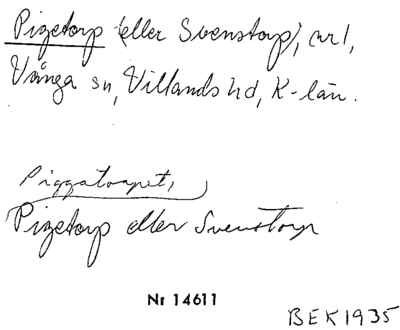 Pigetorp (eller Svenstorp), nr 1,
Vånga sn, Villands hd, K-län.
Piggatorpet,
Pigetorp eller Svenstorp
Nr 14611
BEK 1935